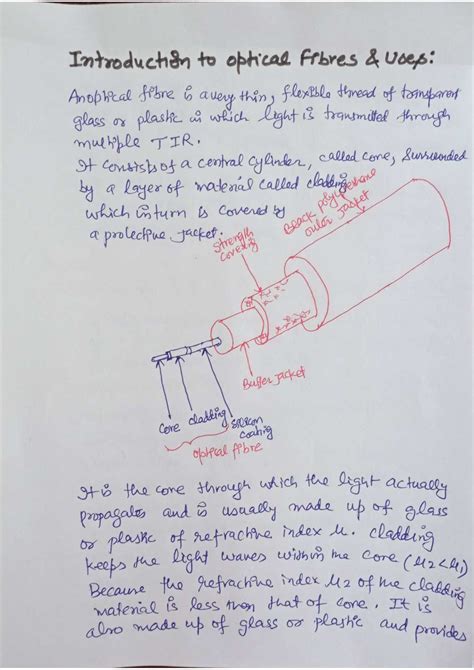 Introduction to optical fibres & Uses:
An optical fibre is a very thin, flexible thread of transparent
glass or plastic in which light is transmitted through
multiple TIR.
It consists of a central cylinder, called core, surrounded
by a layer of material called cladding
which in turn is covered by
a protective jacket.
Strength covering
Black polyurethane outer jacket
Buffer jacket
core
cladding
silicon coating
optical fibre
It is the core through which the light actually
propagates and is usually made up of glass
or plastic of refractive index μ. cladding
keeps the light waves within the core (μ2<μ1)
Because the refractive index μ2 of the cladding
material is less than that of core. It is
also made up of glass or plastic and provides